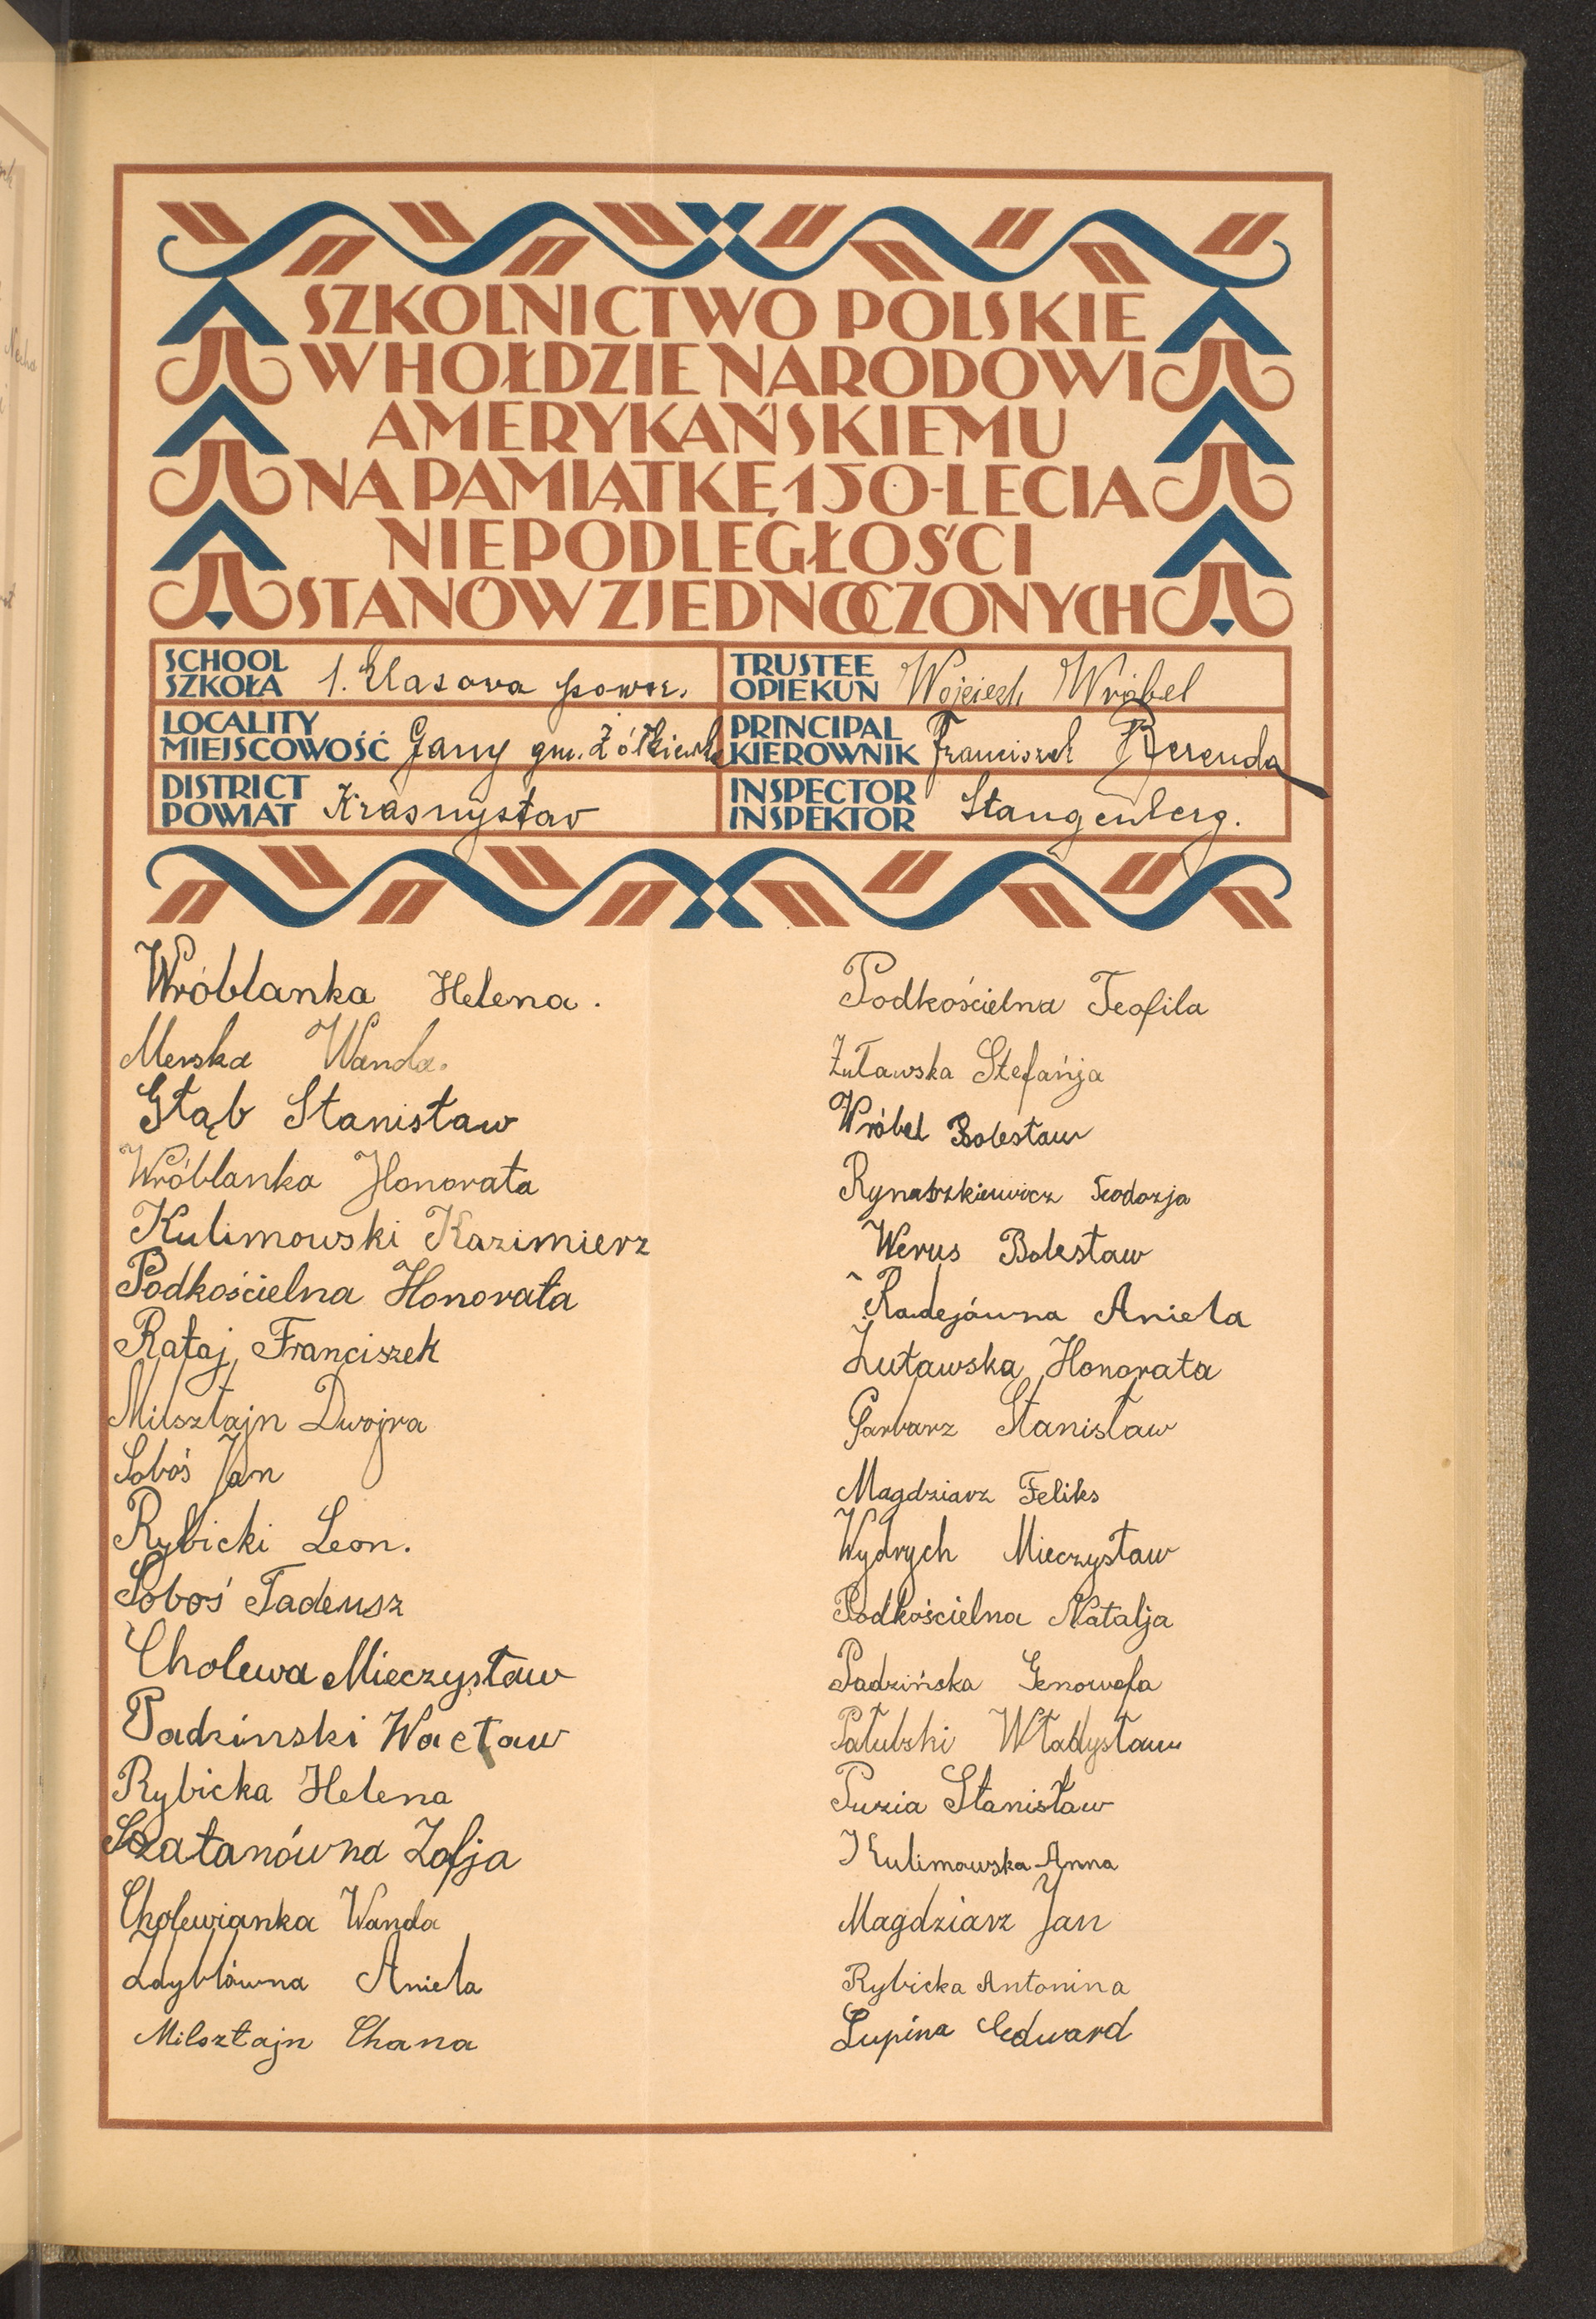 SZKOLNICTWO POLSKIE
W HOŁDZIE NARODOWI
AMERYKAŃSKIEMU
NA PAMIĄTKĘ 150-LECIA
NIEPODLEGŁOŚCI
STANÓW ZJEDNOCZONYCH
SCHOOL
SZKOŁA 1. klasowa powsz.
TRUSTEE
OPIEKUN Wojciech Wróbel
LOCALITY
MIEJSCOWOŚĆ Gany gm. Żółkiewka
PRINCIPAL
KIEROWNIK Franciszek Berenda
DISTRICT
POWIAT Krasnystaw
INSPECTOR
INSPEKTOR Stangenberg.
Wróblanka Helena.
Merska Wanda.
Głąb Stanisław
Wróblanka Honorata
Kulimowski Kazimierz
Podkościelna Honorata
Rataj Franciszek
Milsztajn Dwojra
Soboś Jan
Rybicki Leon.
Soboś Tadeusz
Cholewa Mieczysław
Padzinski Wacław
Rybicka Helena
Szatanówna Zofja
Cholewianka Wanda
Aniela
Milsztajn Chana
Podkościelna Teofila
Żuławska Stefańja
Wróbel Bolesław
Teodozja
Werus Bolesław
Radejówna Aniela
Żuławska Honorata
Garbarz Stanisław
Magdziarz Feliks
Wydrych Mieczysław
Podkościelna Natalja
Padzińska Genowefa
Władysław
Puzia Stanisław
Kulimowska Anna
Magdziarz Jan
Rybicka Antonina
Lupina Edward